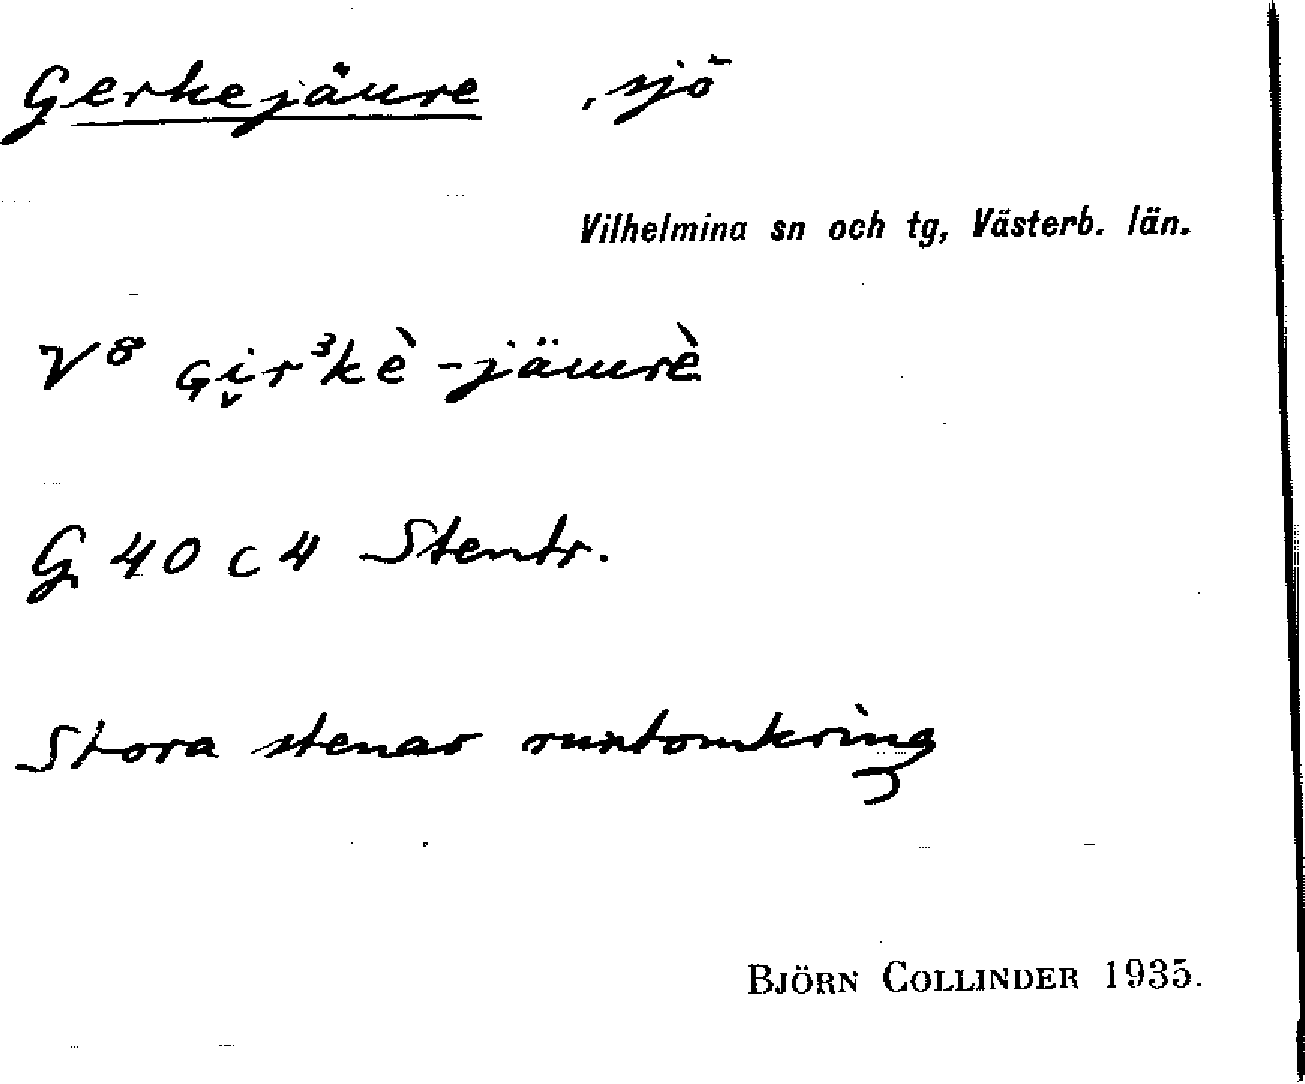 Gerkejaure, sjö
Vilhelmina sn och tg, Västerb. län.
V8 Gi̬r³kè-jäurè
G. 40 c 4 Stentr.
Stora stenar runtomkring
BJÖRN COLLINDER 1935.